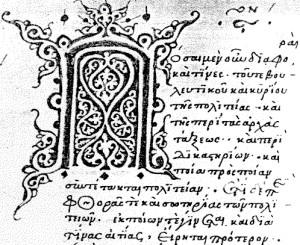 ραὶ
Π όσαι μὲν οὖν διαφο
καὶ τίνες τοῦ τε βου
λευτικοῦ καὶ κυρίου
τῆς πολιτείας · καὶ
τῆς περὶ τὰς ἀρχὰς
τάξεως · καὶ περὶ
δικαστηρίων · καὶ
ποία πρὸς ποίαν
συντέτακται πολιτείαν.
φθορᾶς τε καὶ σωτηρίας τῶν πολι
τειῶν. ἐκ ποίων τε γίνεται καὶ διὰ
τίνας αἰτίας, εἴρηται πρότερον.